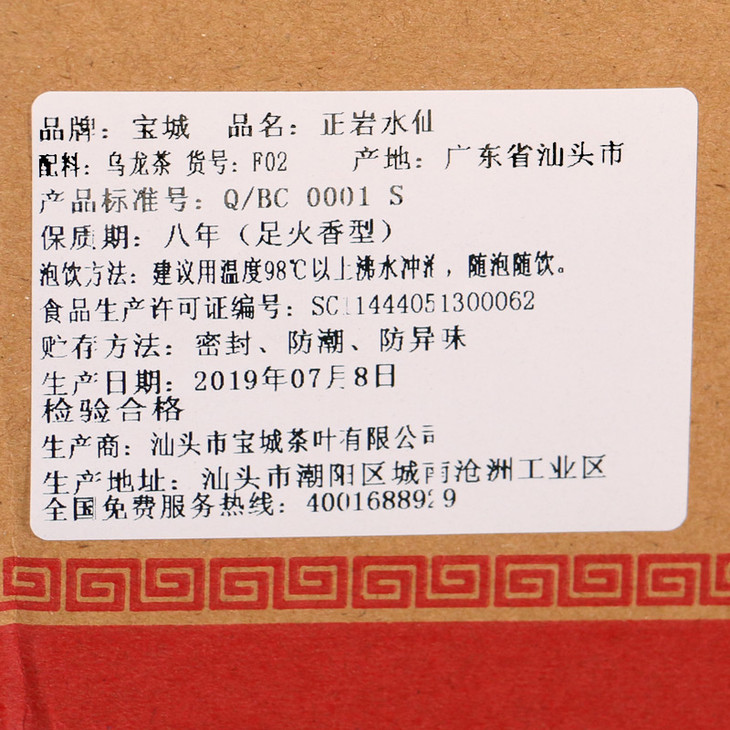 品牌：宝城 品名：正岩水仙
配料：乌龙茶 货号：F02 产地：广东省汕头市
产品标准号：Q/BC 0001 S
保质期：八年（足火香型）
泡饮方法：建议用温度98℃以上沸水冲泡，随泡随饮。
食品生产许可证编号：SC11444051300062
贮存方法：密封、防潮、防异味
生产日期：2019年07月8日
检验合格
生产商：汕头市宝城茶叶有限公司
生产地址：汕头市潮阳区城南沧洲工业区
全国免费服务热线：4001688929